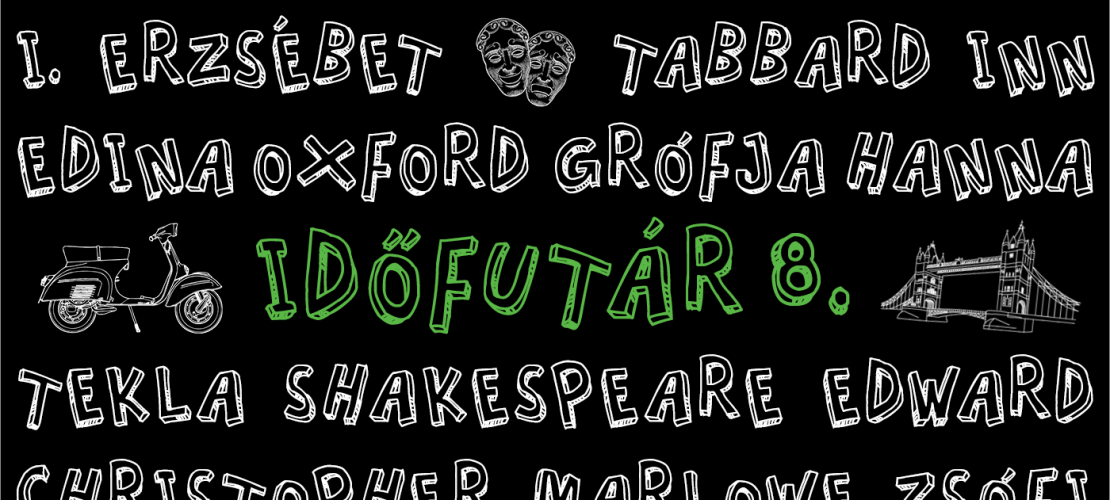 I. ERZSÉBET TABBARD INN
EDINA OXFORD GRÓFJA HANNA
IDŐFUTÁR 8.
TEKLA SHAKESPEARE EDWARD
CHRISTOPHER MARLOWE ZSÓFI